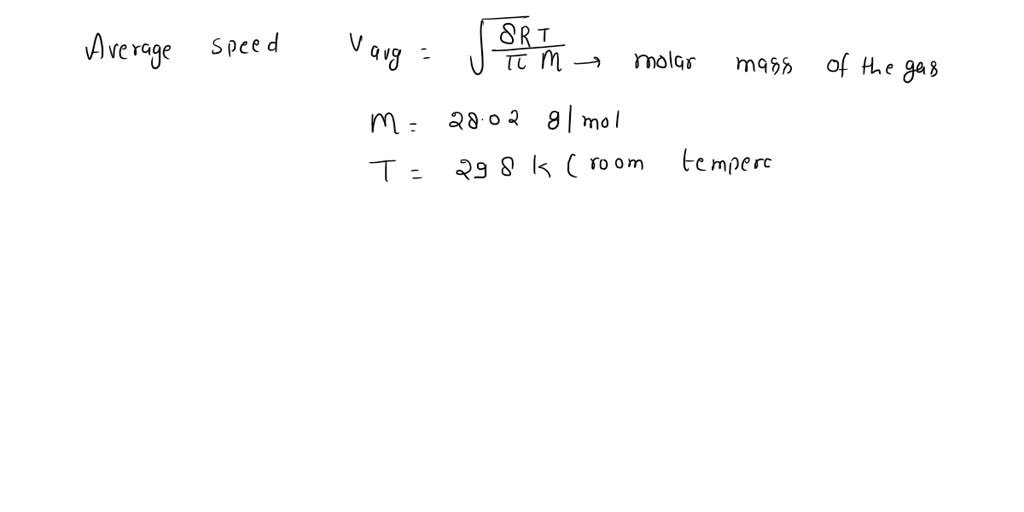 Average speed Vavg = √(8RT / π M) → molar mass of the gas
M = 28.02 g/mol
T = 298 K (room temperc